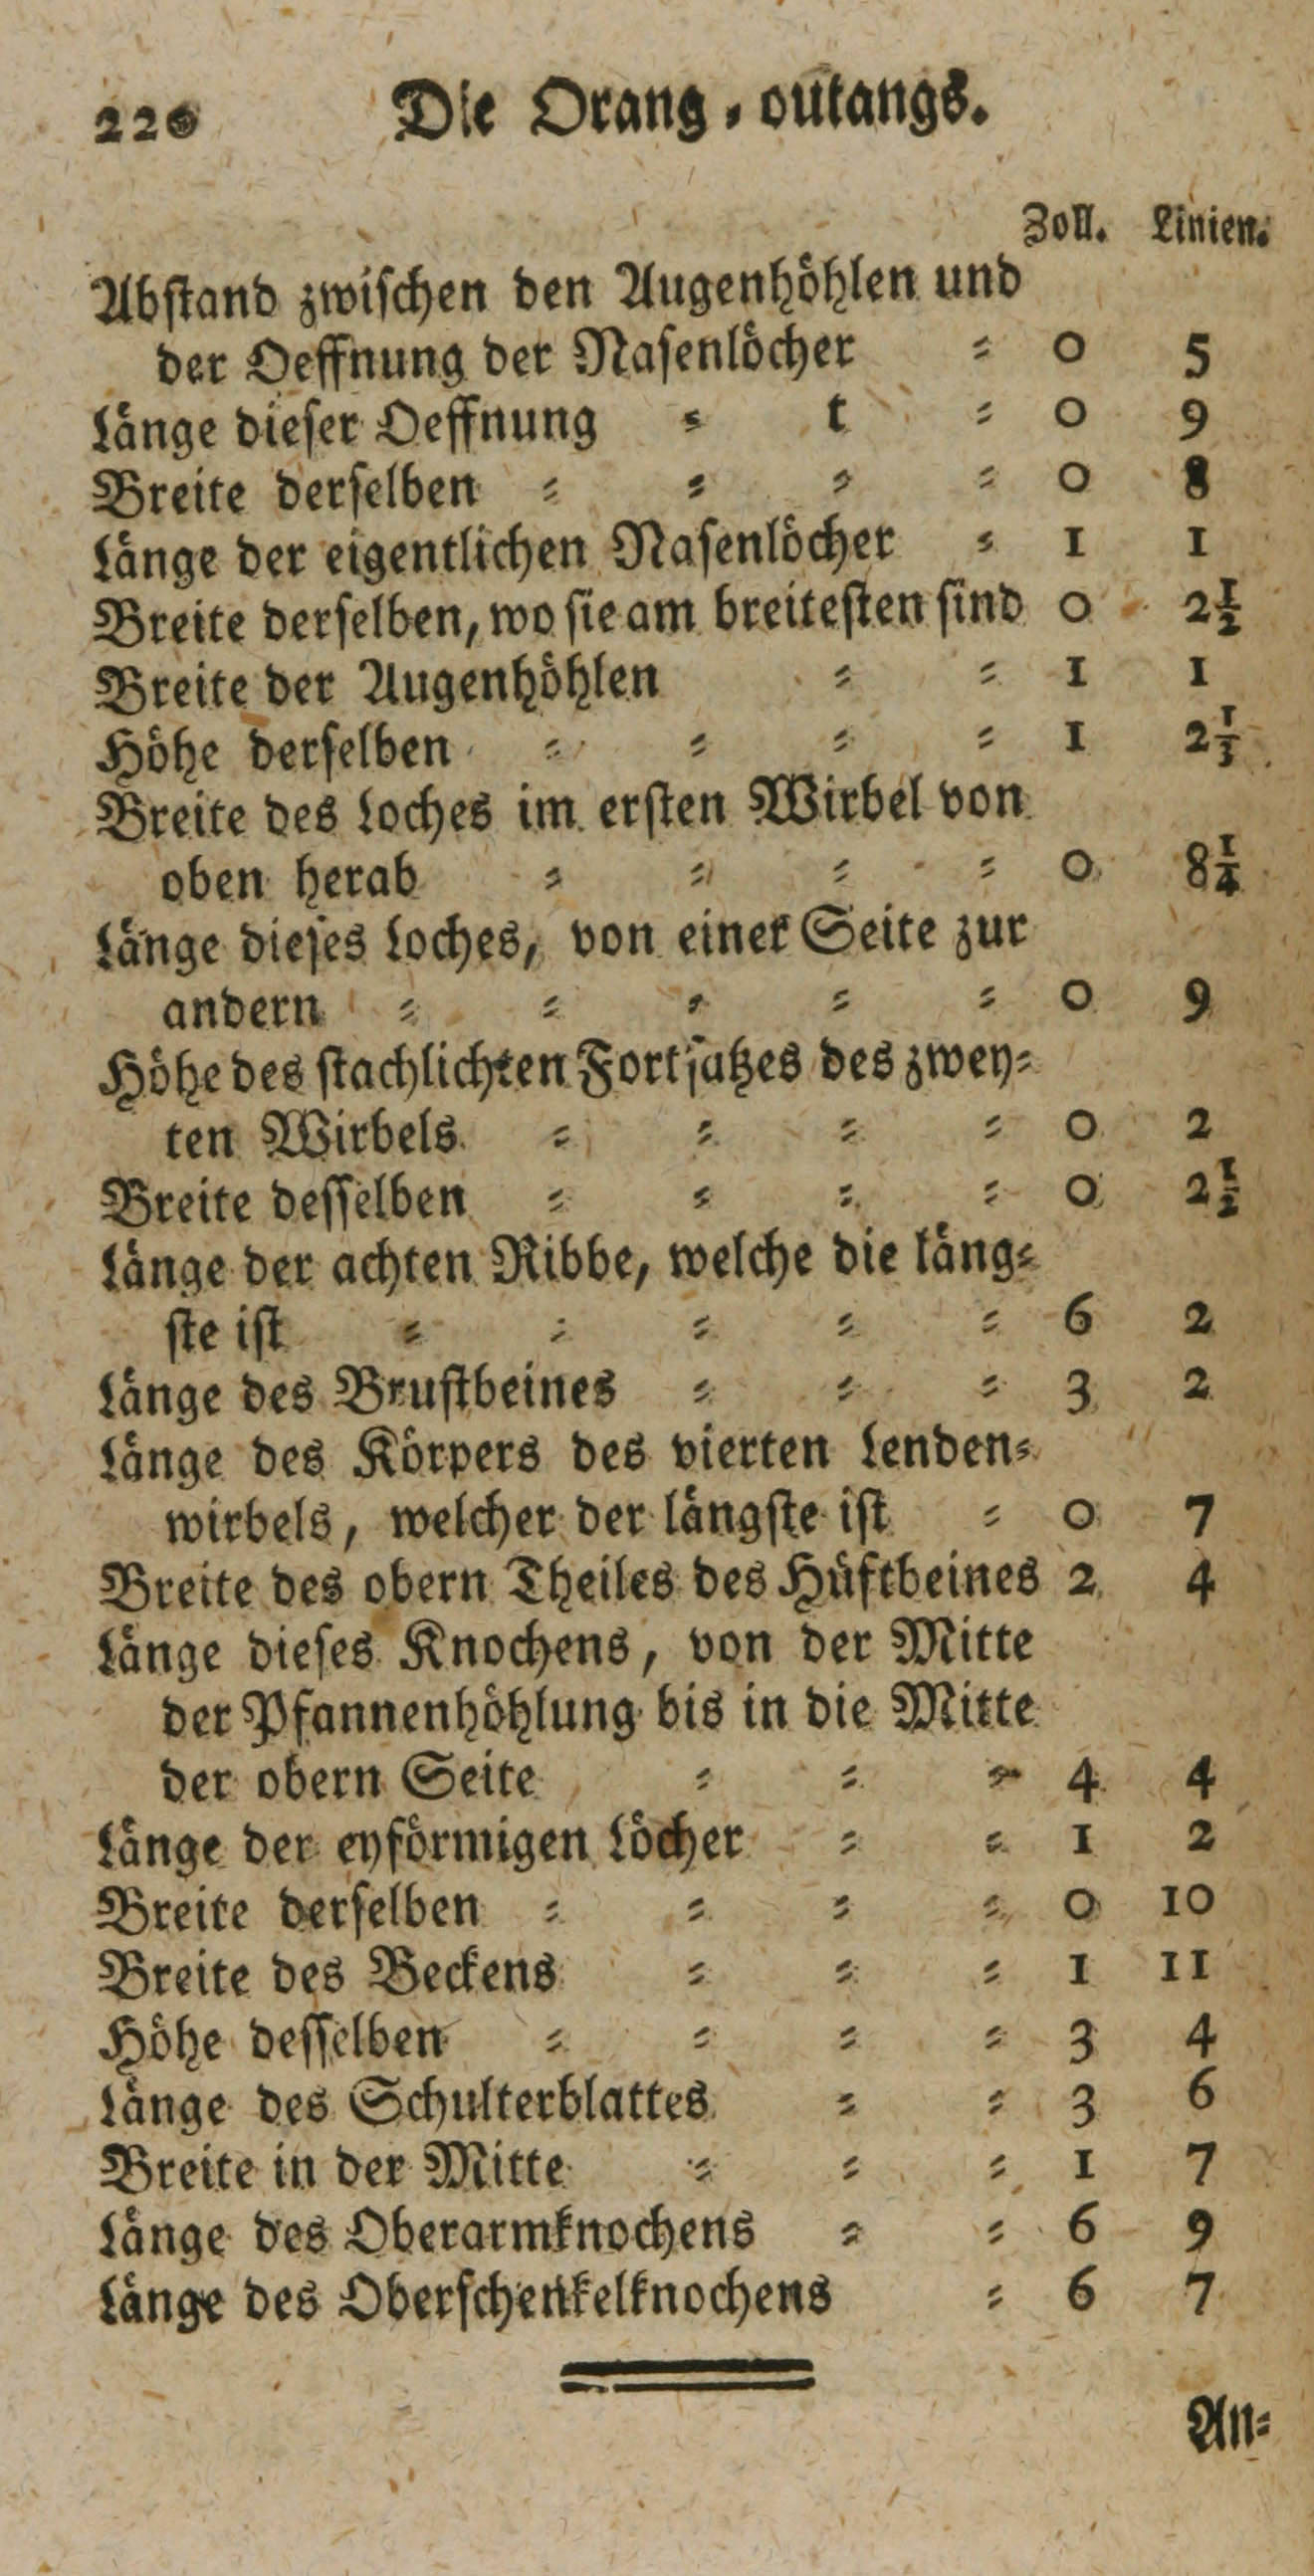 220 Die Orang⸗outangs.
Zoll. Linien.
Abstand zwischen den Augenhöhlen und
der Oeffnung der Nasenlöcher ⸗ 0 5
Länge dieser Oeffnung ⸗ t ⸗ 0 9
Breite derselben ⸗ ⸗ ⸗ ⸗ 0 8
Länge der eigentlichen Nasenlöcher ⸗ 1 1
Breite derselben, wo sie am breitesten sind 0 2½
Breite der Augenhöhlen ⸗ ⸗ 1 1
Höhe derselben ⸗ ⸗ ⸗ ⸗ 1 2⅓
Breite des Loches im ersten Wirbel von
oben herab ⸗ ⸗ ⸗ ⸗ 0 8¼
Länge dieses Loches, von einer Seite zur
andern ⸗ ⸗ ⸗ ⸗ ⸗ 0 9
Höhe des stachlichten Fortsatzes des zwey⸗
ten Wirbels ⸗ ⸗ ⸗ ⸗ 0 2
Breite desselben ⸗ ⸗ ⸗ ⸗ 0 2½
Länge der achten Ribbe, welche die läng⸗
ste ist ⸗ ⸗ ⸗ ⸗ ⸗ 6 2
Länge des Brustbeines ⸗ ⸗ ⸗ 3 2
Länge des Körpers des vierten Lenden⸗
wirbels, welcher der längste ist ⸗ 0 7
Breite des obern Theiles des Hüftbeines 2 4
Länge dieses Knochens, von der Mitte
der Pfannenhöhlung bis in die Mitte
der obern Seite ⸗ ⸗ ⸗ 4 4
Länge der eyförmigen Löcher ⸗ ⸗ 1 2
Breite derselben ⸗ ⸗ ⸗ ⸗ 0 10
Breite des Beckens ⸗ ⸗ ⸗ 1 11
Höhe desselben ⸗ ⸗ ⸗ ⸗ 3 4
Länge des Schulterblattes ⸗ ⸗ 3 6
Breite in der Mitte ⸗ ⸗ ⸗ 1 7
Länge des Oberarmknochens ⸗ ⸗ 6 9
Länge des Oberschenkelknochens ⸗ 6 7
An⸗